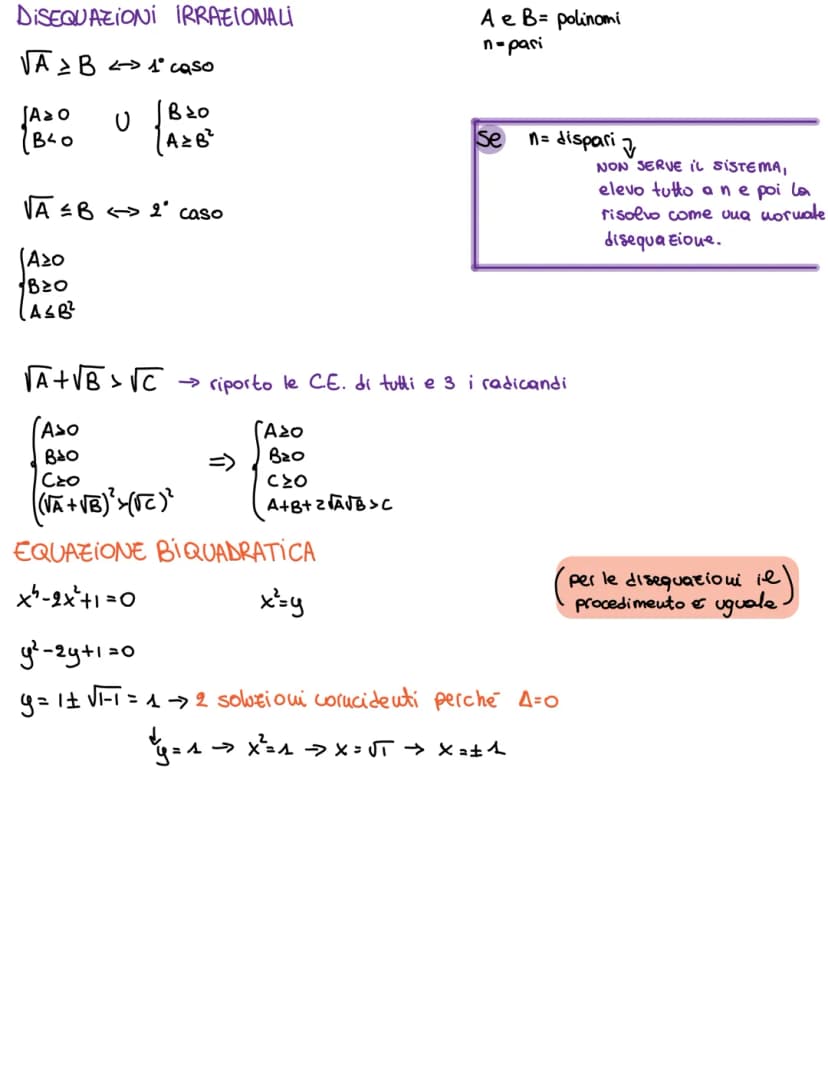 DISEQUAZIONI IRRAZIONALI
A e B= polinomi
n=pari
√A ≥ B ⟷ 1° caso
{A≥0 ∪ {B≥0
{B<0 {A≥B²
Se n= dispari ↴
NON SERVE IL SISTEMA,
elevo tutto a n e poi la
risolvo come una normale
disequazione.
√A ≤ B ⟷ 2° caso
{A≥0
{B≥0
{A≤B²
√A + √B > √C → riporto le C.E. di tutti e 3 i radicandi
{A≥0 {A≥0
{B≥0 ⇒ {B≥0
{C≥0 {C≥0
{(√A + √B)² > (√C)² {A+B+2√A√B > C
EQUAZIONE BIQUADRATICA
(per le disequazioni il
procedimento è uguale)
x⁴-2x²+1=0 x²=y
y²-2y+1=0
y = 1 ± √1-1 = 1 → 2 soluzioni coincidenti perché Δ=0
↓ y=1 → x²=1 → x=√1 → x=±1